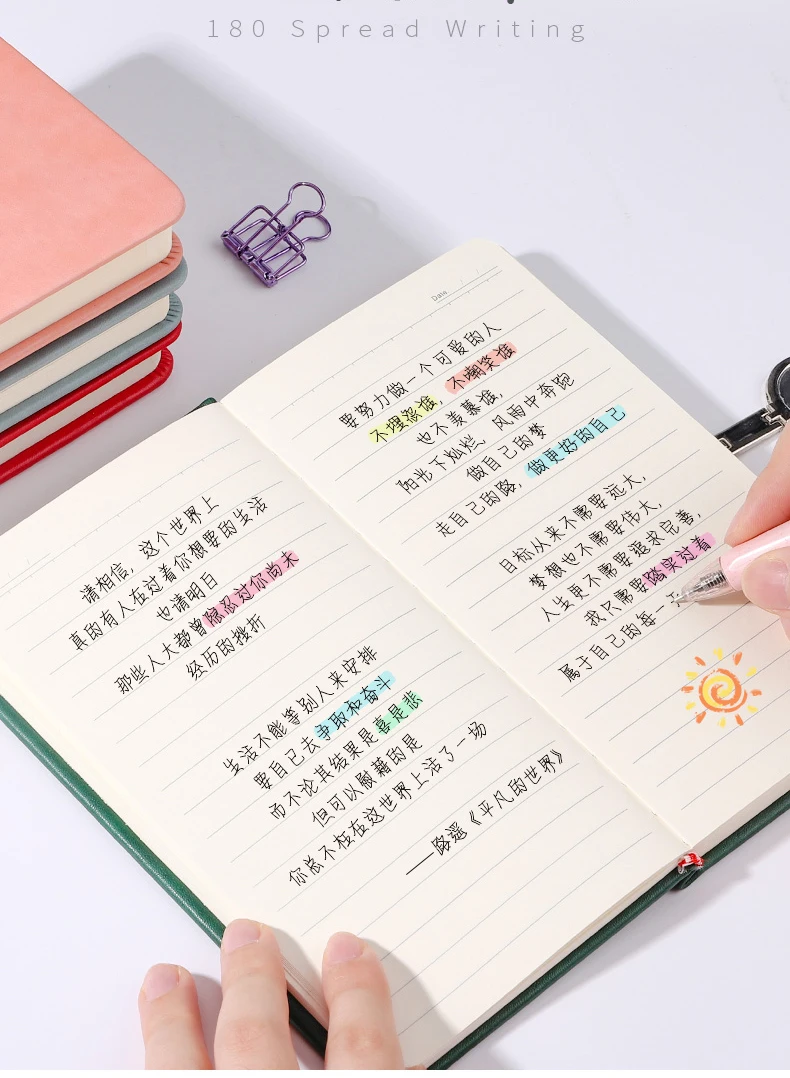 180 Spread Writing
请相信，这个世界上
真的有人在过着你想要的生活
也请明白
那些人大都曾隐忍过你尚未
经历的挫折
生活不能等别人来安排
要自己去争取和奋斗
而不论其结果是喜是悲
但可以慰藉的是
你总不枉在这世界上活了一场
——路遥《平凡的世界》
Date
要努力做一个可爱的人
不埋怨谁，不嘲笑谁
也不羡慕谁，
阳光下灿烂，风雨中奔跑
做自己的梦
走自己的路，做更好的自己
目标从来不需要远大，
梦想也不需要伟大，
人生更不需要追求完善，
我只需要踏实过着
属于自己的每一